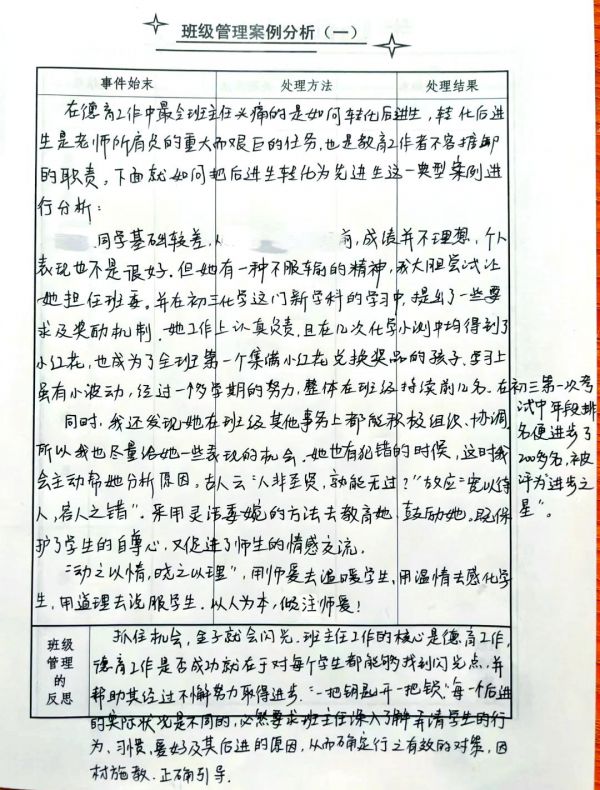 班级管理案例分析（一）
事件始末 处理方法 处理结果
在德育工作中最令班主任头痛的是如何转化后进生，转化后进
生是老师所肩负的重大而艰巨的任务，也是教育工作者不容推卸
的职责。下面就如何把后进生转化为先进生这一典型案例进
行分析：
同学基础较差， 前，成绩并不理想，个人
表现也不是很好。但她有一种不服输的精神，我大胆尝试让
她担任班委。并在初三化学这门新学科的学习中，提出了一些要
求及奖励机制。她工作上认真负责，且在几次化学小测中均得到了
小红花，也成为了全班第一个集满小红花兑换奖品的孩子。学习上
虽有小波动，经过一个多学期的努力，整体在班级持续前几名。在初三第一次考
试中年段排
名便进步了
200多名，被
评为"进步之
星"。
同时，我还发现她在班级其他事务上都能积极组织、协调，
所以我也尽量给她一些表现的机会。她也有犯错的时候，这时我
会主动帮她分析原因。古人云："人非圣贤，孰能无过？"故应"宽以待
人，容人之错"。采用灵活委婉的方法去教育她，鼓励她。既保
护了学生的自尊心，又促进了师生的情感交流。
"动之以情，晓之以理"，用师爱去温暖学生，用温情去感化学
生，用道理去说服学生。以人为本，倾注师爱！
班级
管理
的
反思
抓住机会，金子就会闪光。班主任工作的核心是德育工作，
德育工作是否成功就在于对每个学生都能够找到闪光点，并
帮助其经过不懈努力取得进步。"一把钥匙开一把锁"每一个后进
的实际状况是不同的，必然要求班主任深入了解弄清学生的行
为、习惯、爱好及其后进的原因，从而确定行之有效的对策，因
材施教，正确引导。